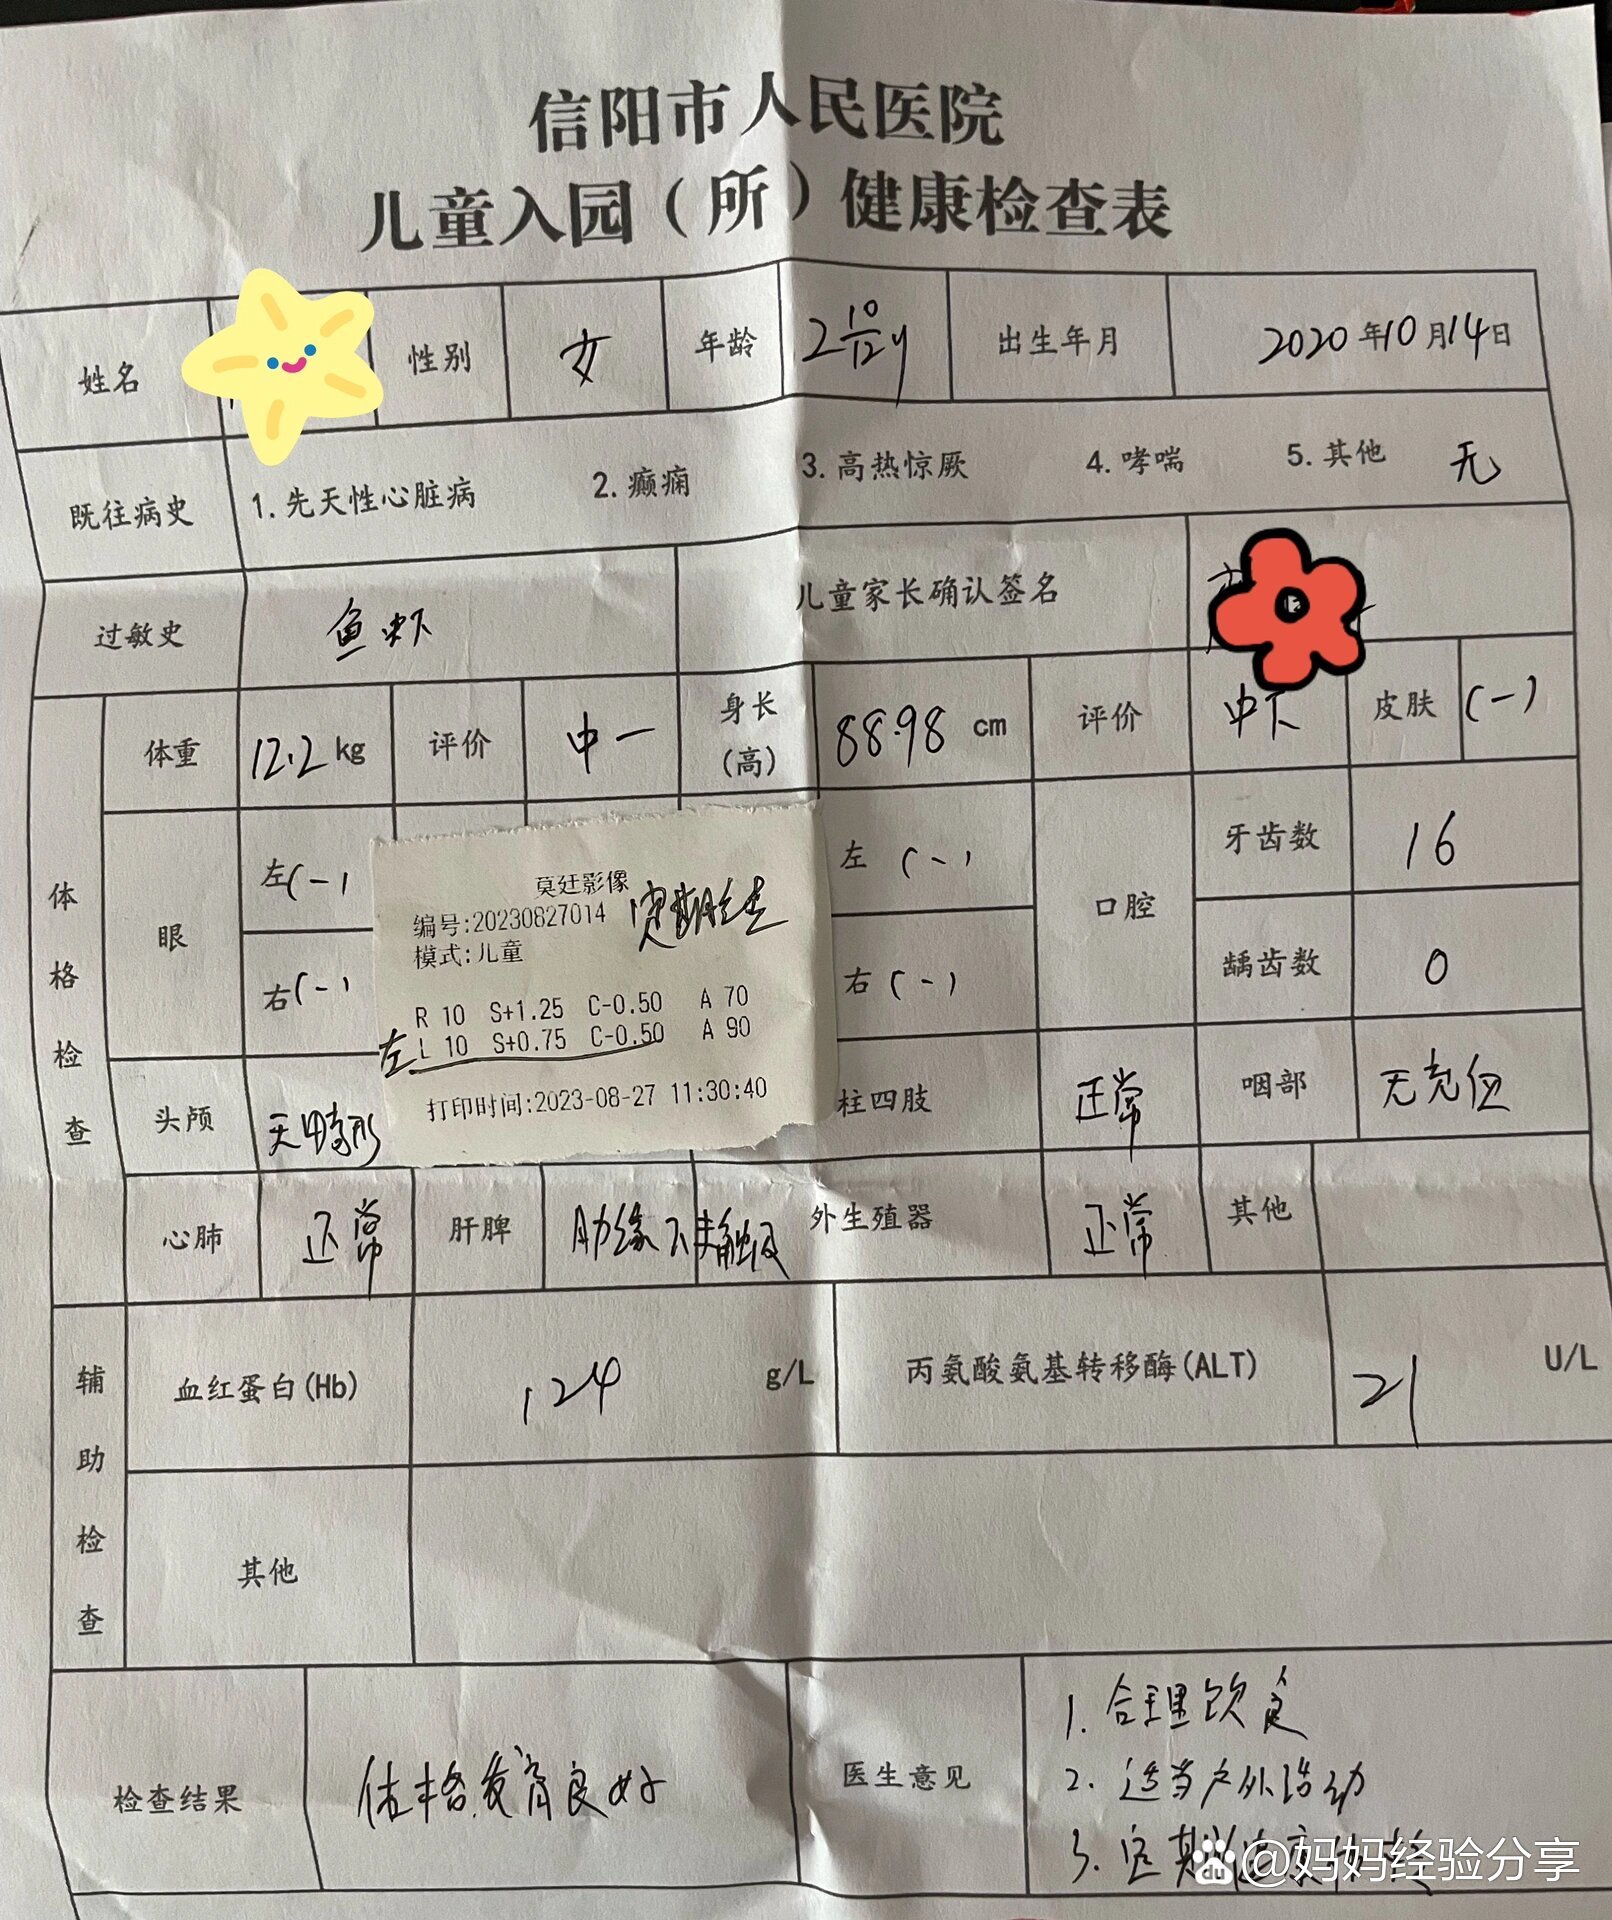 信阳市人民医院
儿童入园（所）健康检查表
姓名 性别 女 年龄 2 10/12 y 出生年月 2020年10月14日
既往病史 1.先天性心脏病 2.癫痫 3.高热惊厥 4.哮喘 5.其他 无
过敏史 鱼虾 儿童家长确认签名
体格检查
体重 12.2 kg 评价 中一 身长（高） 88.98 cm 评价 中下 皮肤 (-)
眼 左(-) 左 (-) 口腔 牙齿数 16
右(-) 右 (-) 龋齿数 0
莫廷影像
编号:20230827014 定期复查
模式:儿童
R 10 S+1.25 C-0.50 A 70
左 L 10 S+0.75 C-0.50 A 90
打印时间:2023-08-27 11:30:40
头颅 无畸形 柱四肢 正常 咽部 无充血
心肺 正常 肝脾 肋缘下未触及 外生殖器 正常 其他
辅助检查
血红蛋白(Hb) 124 g/L 丙氨酸氨基转移酶(ALT) 21 U/L
其他
检查结果 体格发育良好 医生意见
1. 合理饮食
2. 适当户外活动
3. 定期
du @妈妈经验分享